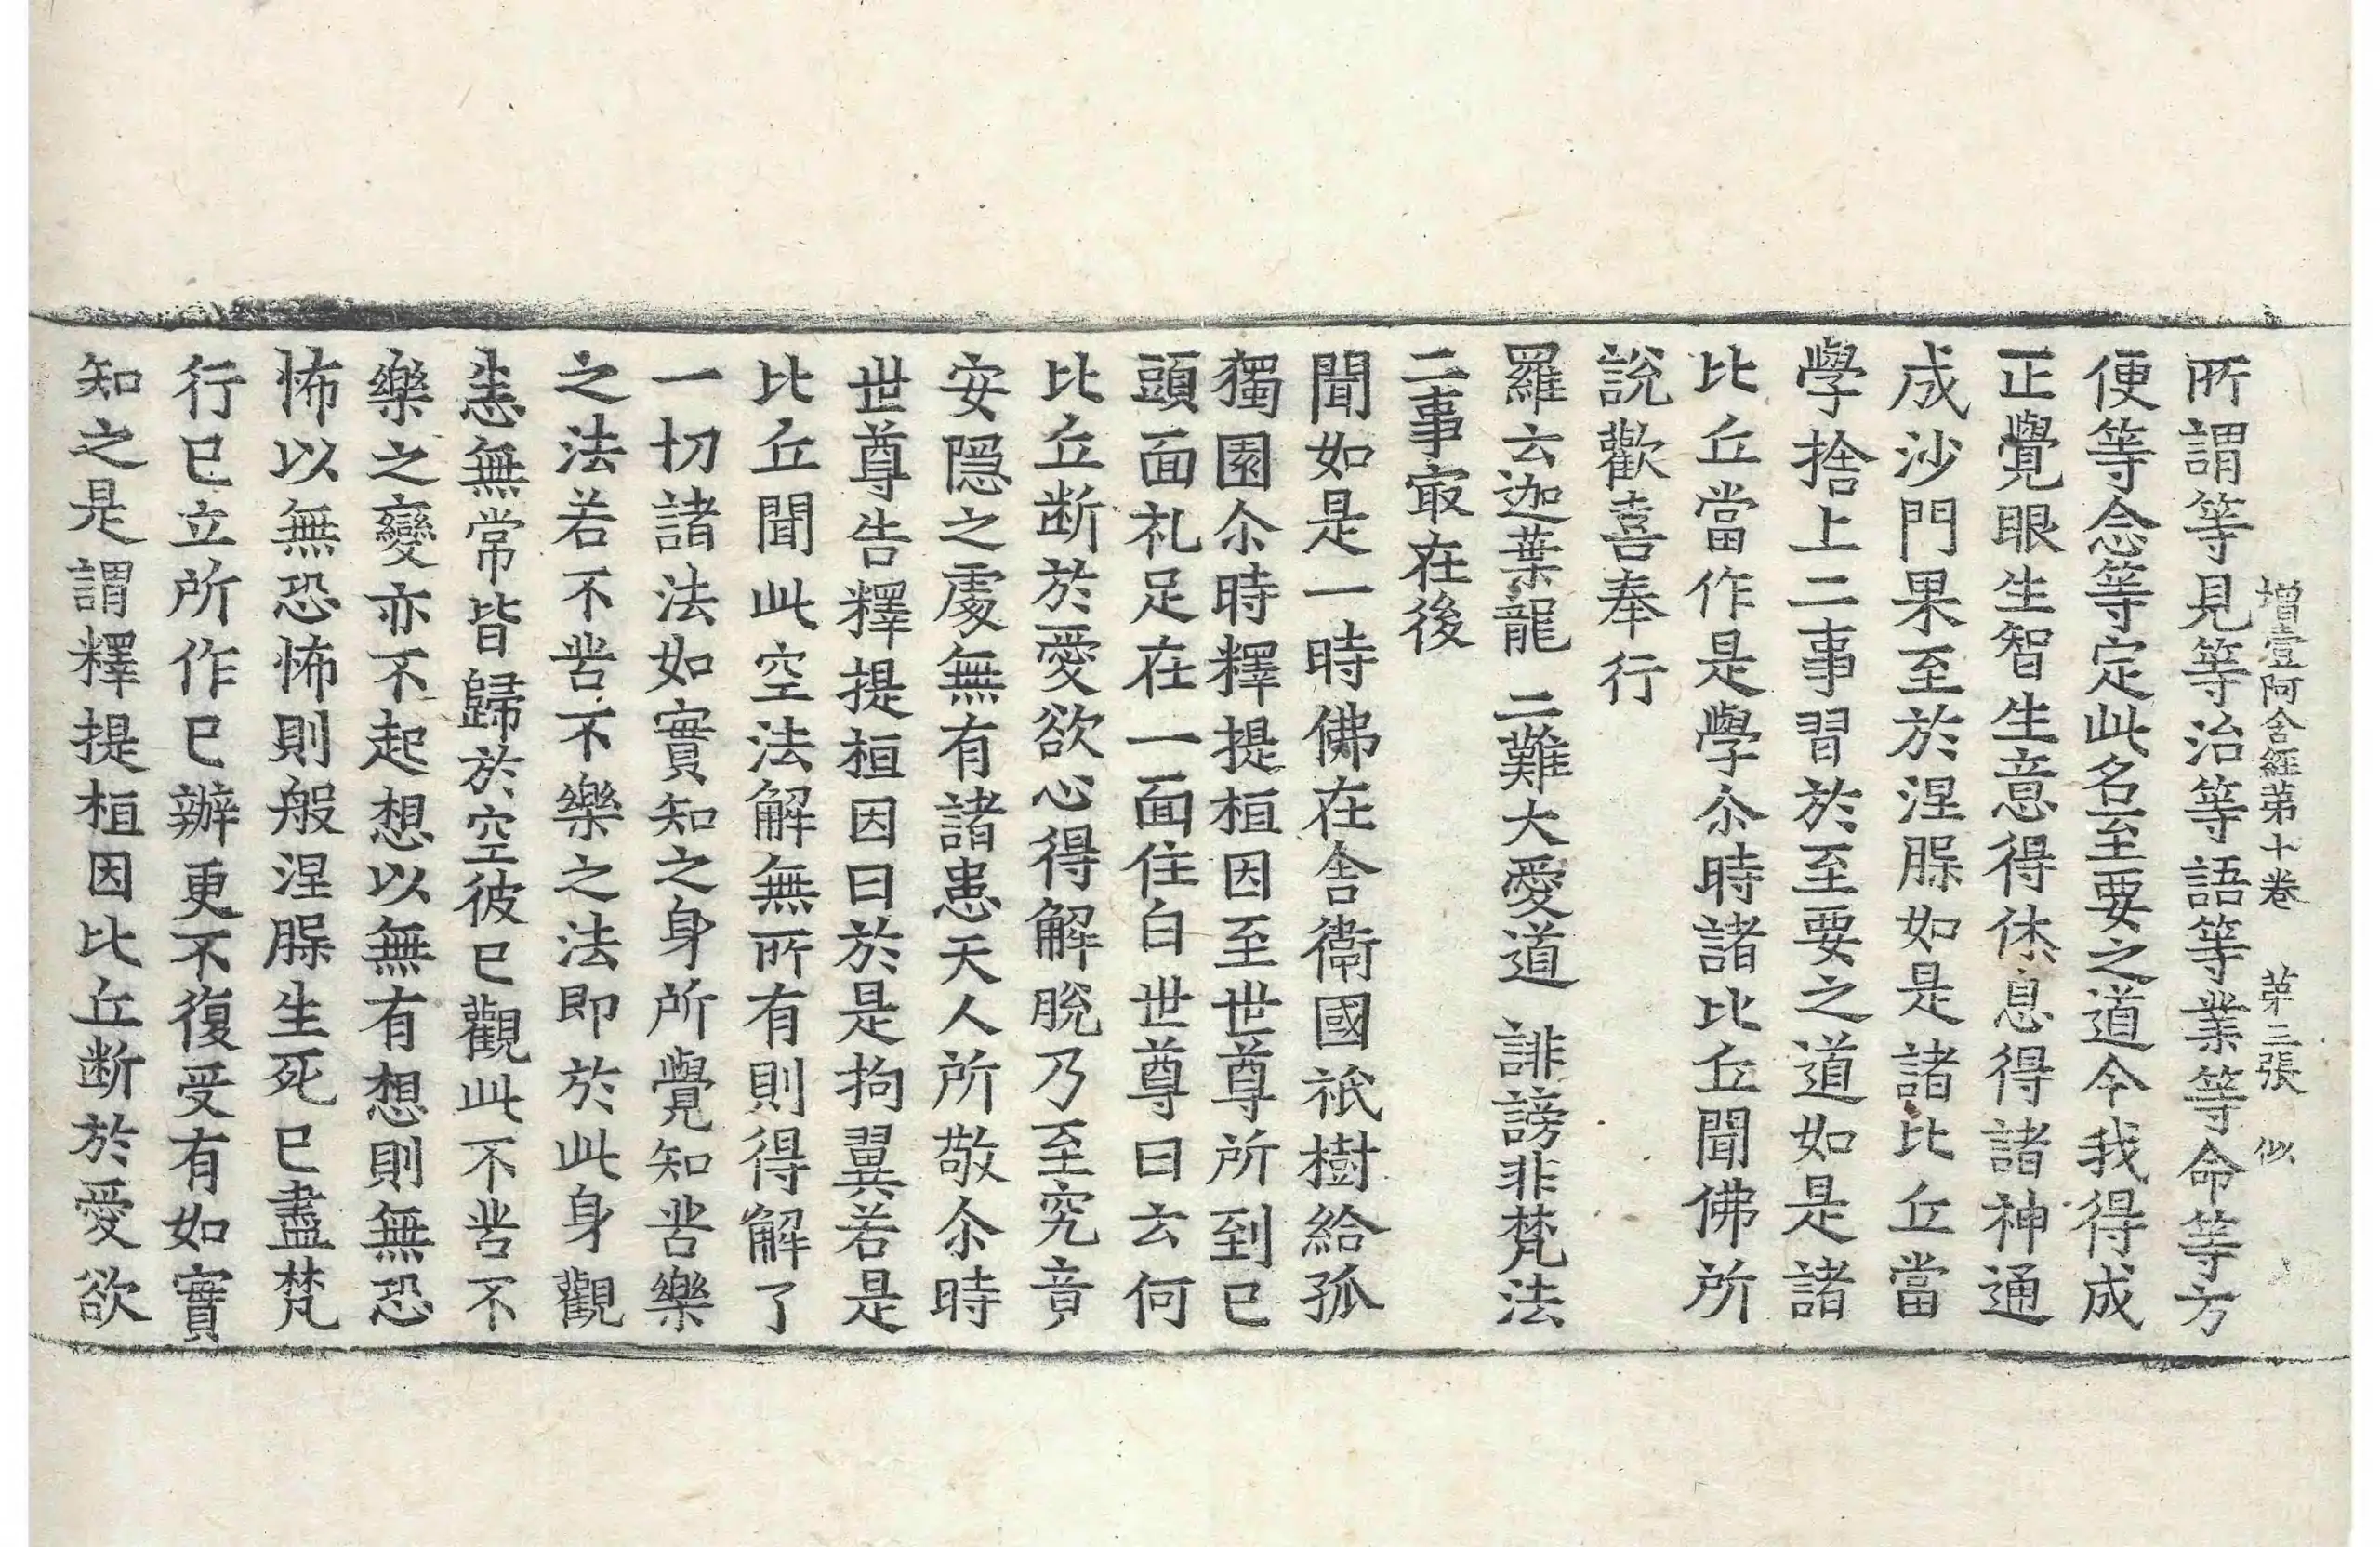 增壹阿含經第十卷 第三張 似
所謂等見等治等語等業等命等方
便等念等定此名至要之道今我得成
正覺眼生智生意得休息得諸神通
成沙門果至於涅槃如是諸比丘當
學捨上二事習於至要之道如是諸
比丘當作是學尒時諸比丘聞佛所
說歡喜奉行
羅云迦葉龍 二難大愛道 誹謗非梵法
二事㝡在後
聞如是一時佛在舍衛國祇樹給孤
獨園尒時釋提桓因至世尊所到已
頭面礼足在一面住白世尊曰云何
比丘断於愛欲心得解脫乃至究竟
安隱之處無有諸患天人所敬尒時
世尊告釋提桓因曰於是拘翼若是
比丘聞此空法解無所有則得解了
一切諸法如實知之身所覺知苦樂
之法若不苦不樂之法即於此身觀
悉無常皆歸於空彼已觀此不苦不
樂之變亦不起想以無有想則無恐
怖以無恐怖則般涅槃生死已盡梵
行已立所作已辦更不復受有如實
知之是謂釋提桓因比丘断於愛欲